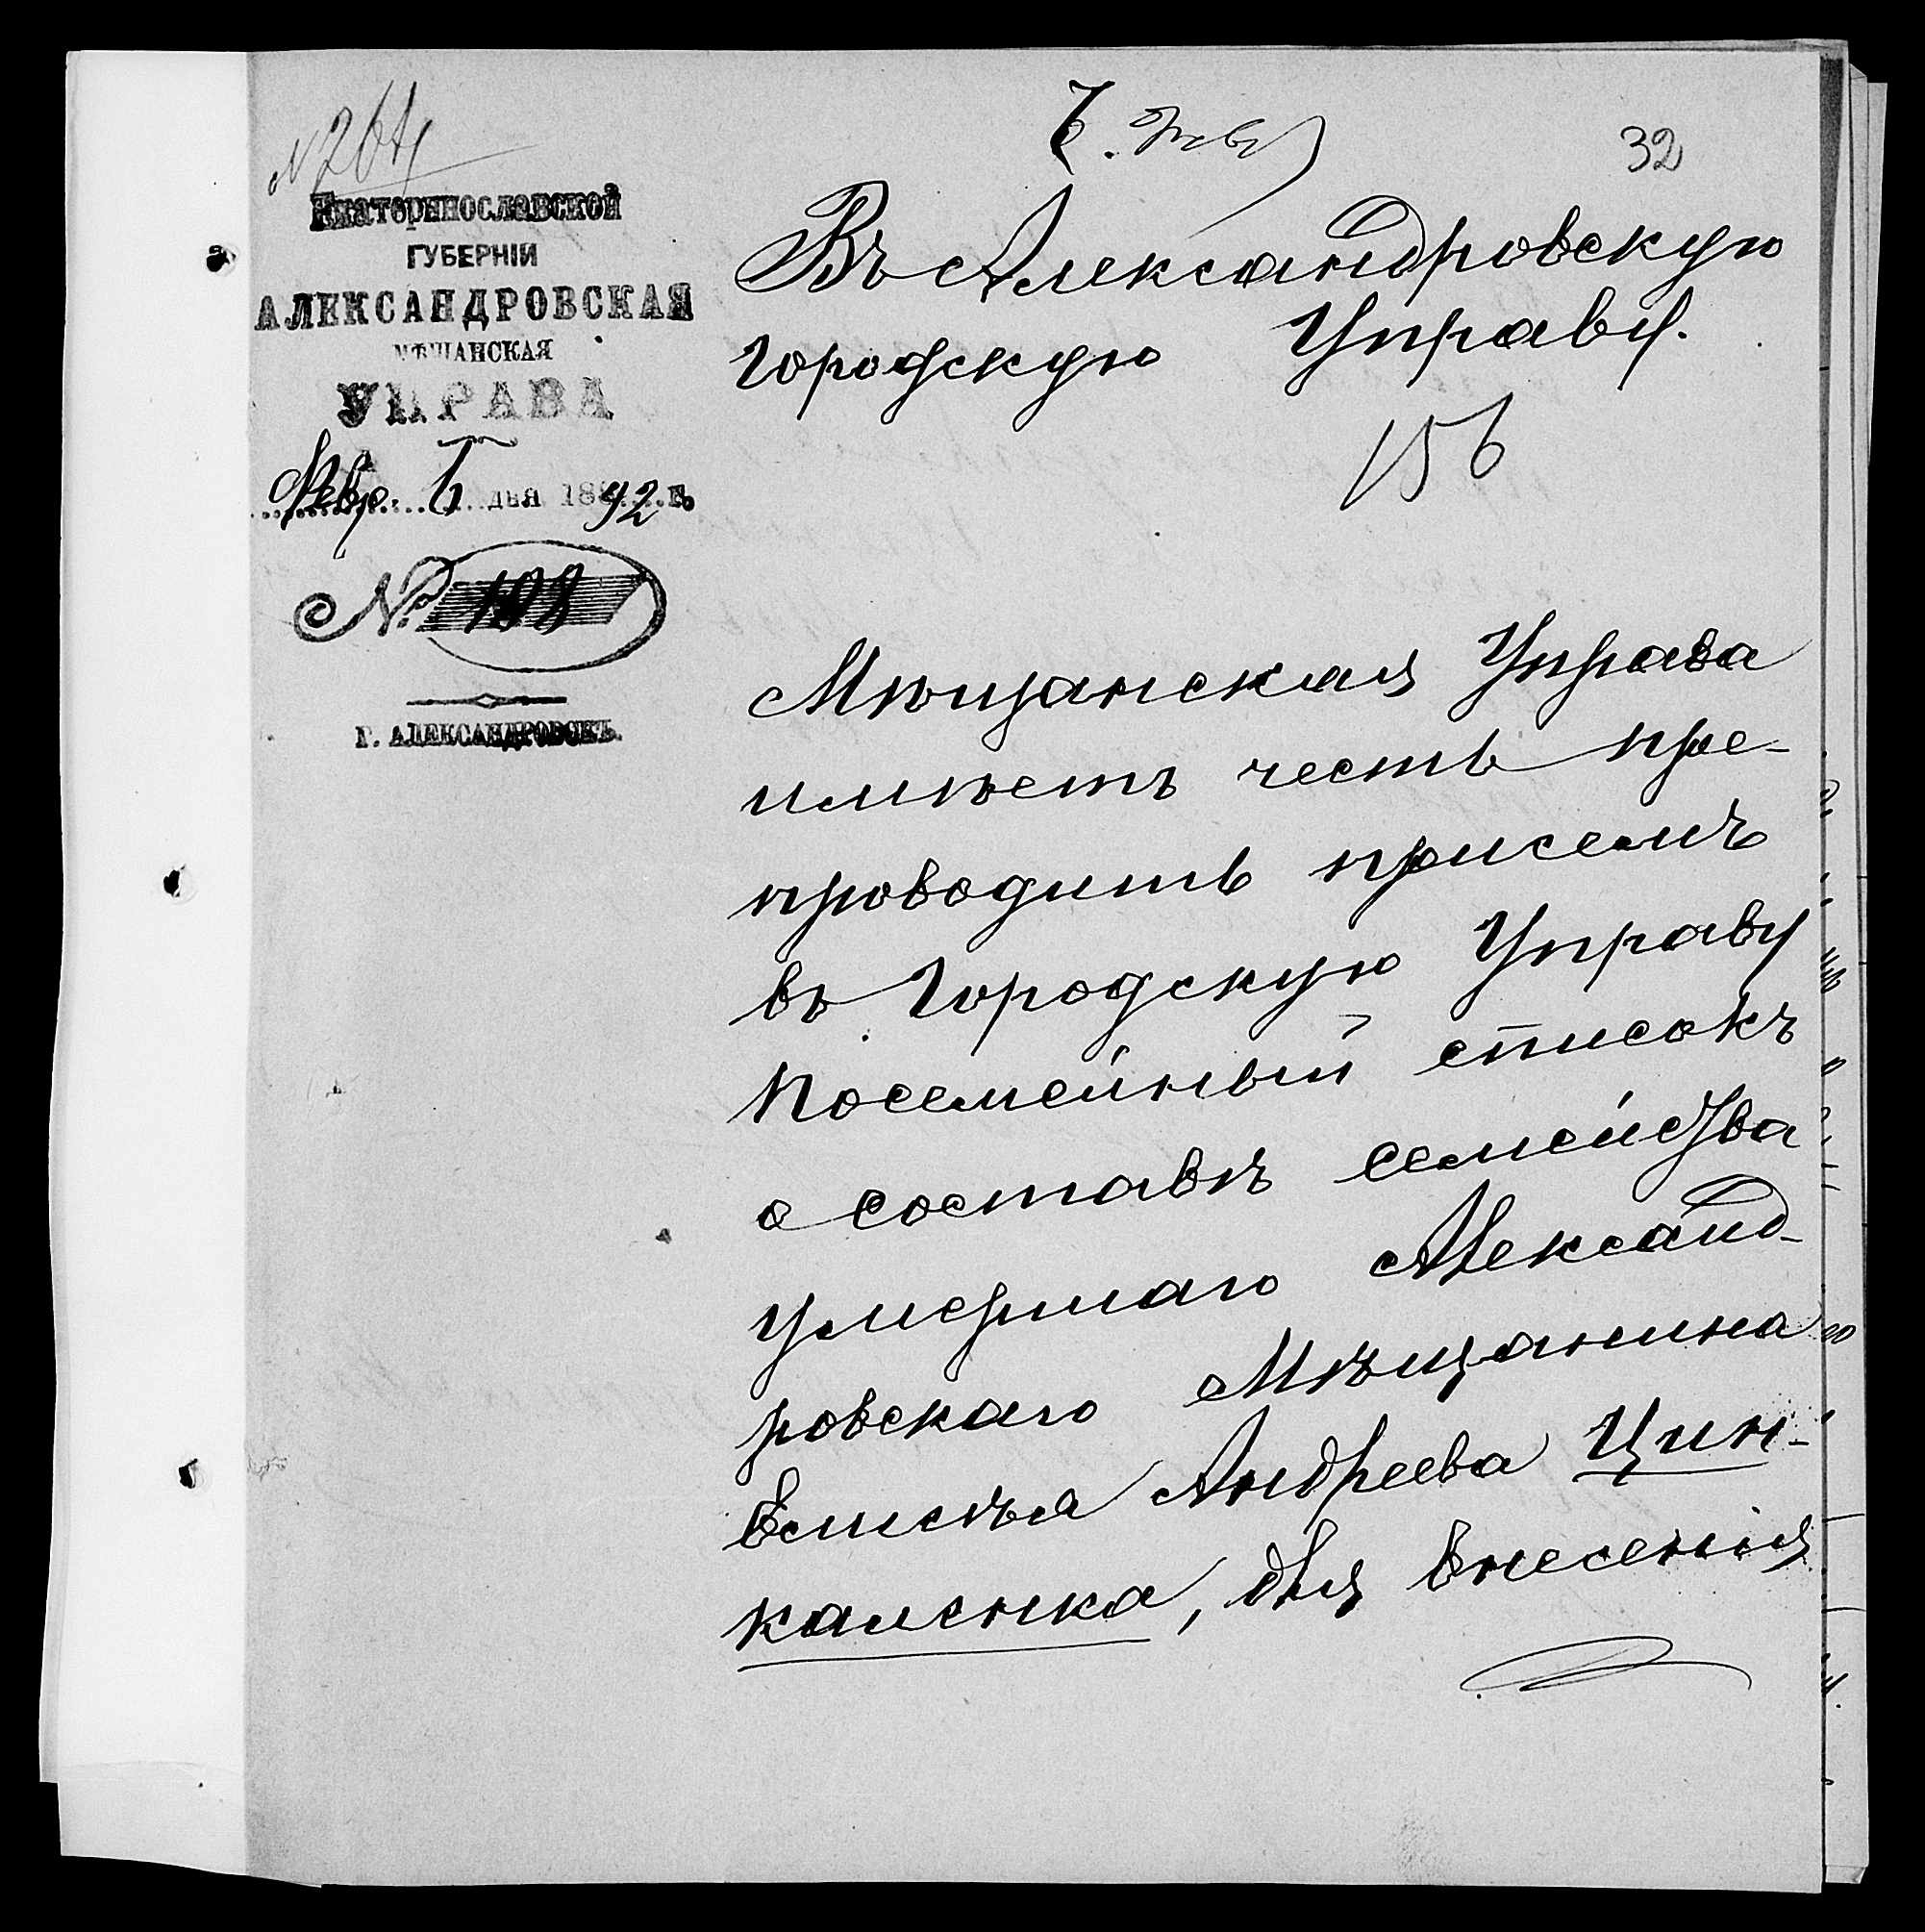 32
Екатеринославской
ГУБЕРНІИ
АЛЕКСАНДРОВСКАЯ
МѢЩАНСКАЯ
УПРАВА
Февр. дня 1892 г.
№ 198
Г. АЛЕКСАНДРОВСКЪ.
Въ Александровскую
Городскую Управу.
156
Мѣщанская Управа
имѣетъ честь пре-
проводить присемъ
въ Городскую Управу
посемейный списокъ
о составѣ семейства
умершаго Александ-
ровскаго Мѣщанина
Андреева Цин-
каленка, для внесенія